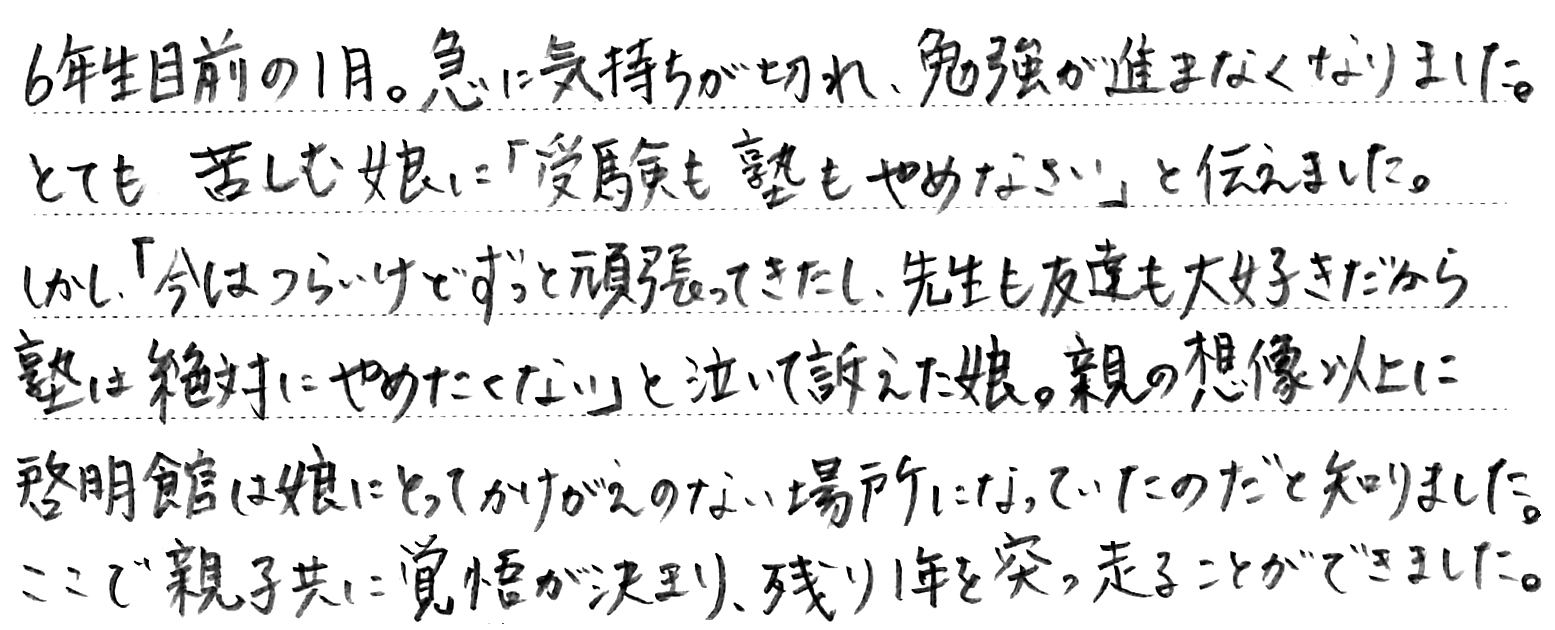 6年生目前の1月。急に気持ちが切れ、勉強が進まなくなりました。
とても 苦しむ娘に「受験も塾もやめなさい」と伝えました。
しかし、「今はつらいけどずっと頑張ってきたし、先生も友達も大好きだから
塾は絶対にやめたくない」と泣いて訴えた娘。親の想像以上に
啓明館は娘にとってかけがえのない場所になっていたのだと知りました。
ここで親子共に覚悟が決まり、残り1年を突っ走ることができました。